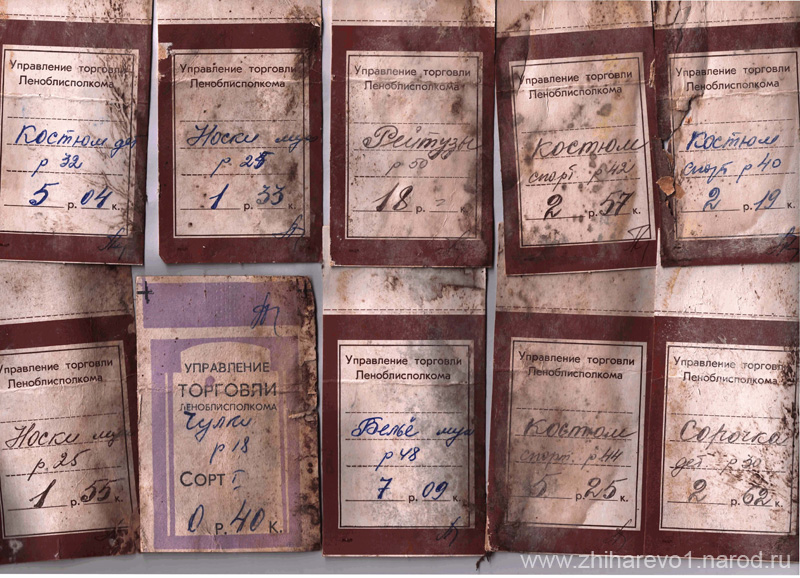 Управление торговли
Леноблисполкома
Костюм де
р 32
5 р. 04 к.
Управление торговли
Леноблисполкома
Носки му
р 25
1 р. 33 к.
Управление торговли
Леноблисполкома
Рейтузы
р 50
18 р. - к.
Управление торговли
Леноблисполкома
Костюм
спорт. р 42
2 р. 57 к.
Управление торговли
Леноблисполкома
Костюм
спорт р 40
2 р. 19 к.
Управление торговли
Леноблисполкома
Носки му
р. 25
1 р. 55 к.
УПРАВЛЕНИЕ
ТОРГОВЛИ
ЛЕНОБЛИСПОЛКОМА
Чулки
р 18
СОРТ I
0 р. 40 к.
Управление торговли
Леноблисполкома
Бельё муж
р 48
7 р. 09 к.
Управление торговли
Леноблисполкома
Костюм
спорт. р 44
5 р. 25 к.
Управление торговли
Леноблисполкома
Сорочка
дет. р 30
2 р. 62 к.
www.zhiharevo1.narod.ru